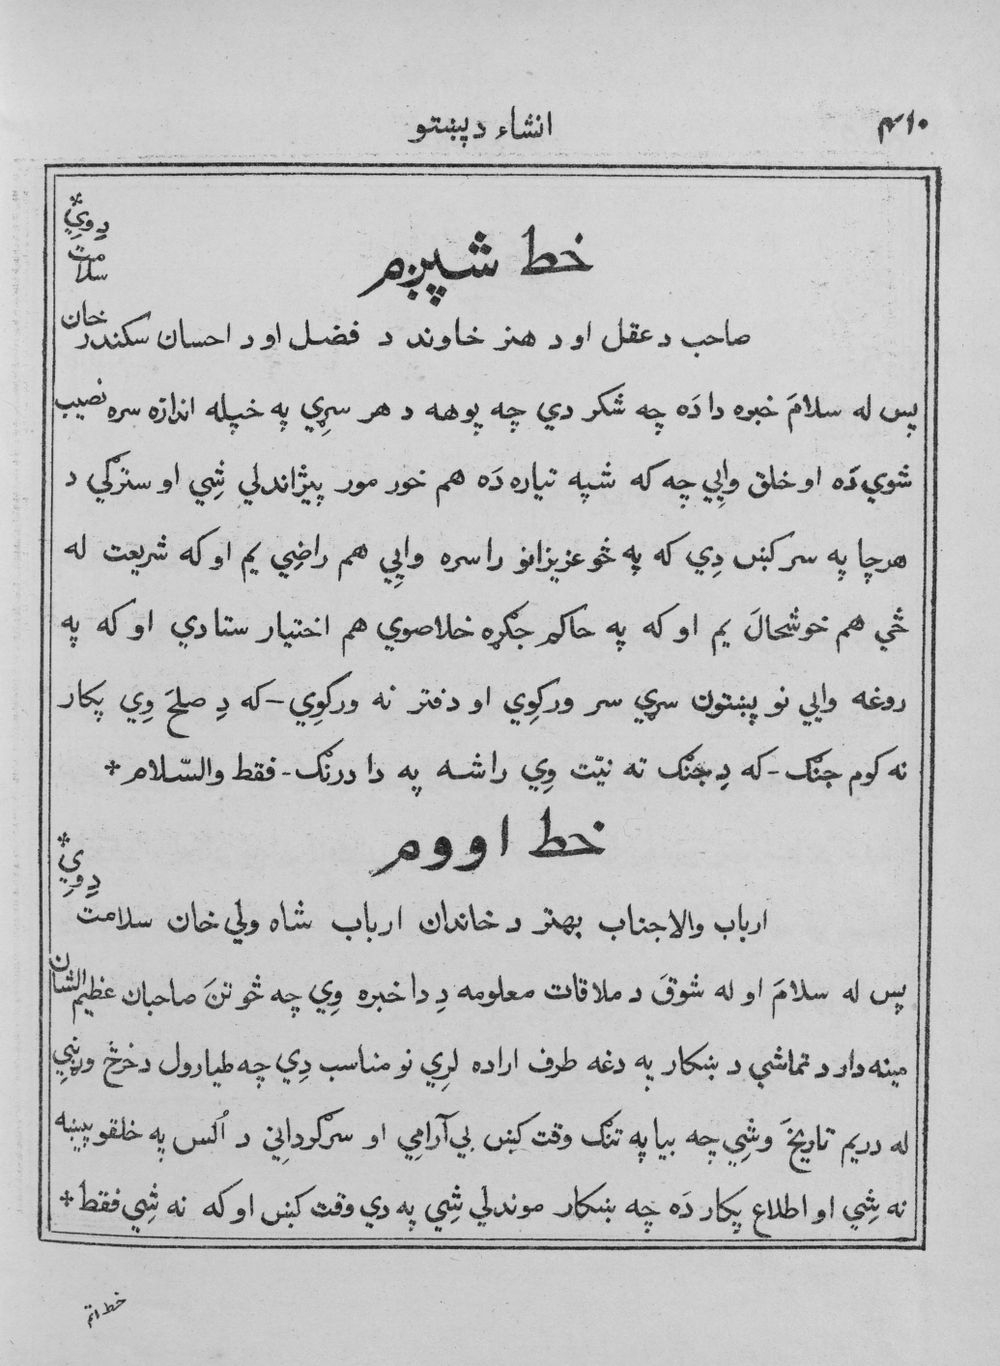 انشاء د پښتو
۴۱۰
خط شپږم
صاحب د عقل او د هنر خاوند د فضل او د احسان سکندر خان سلامت دِ وِي *
پس له سلامَ خبره دا دَه چه شکر دي چه پوهه د هر سړِي په خپله اندازه سره نصیب
شوي دَه او خلق وايِي چه که شپه تیاره دَه هم خور مور پیژاندلي شِي او سترګي د
هرچا په سر کښ دِي که په څو عزیزانو را سره وايِي هم راضِي یم او که شریعت له
ځي هم خوشحالَ یم او که په حاکم جګړه خلاصوي هم اختیار ستا دي او که په
روغه وايي نو پښتون سړي سر ورکوِي او دفتر نه ورکوِي - که دِ صلحَ وِي پکار
نه کوم جنګ - که دِ جنګ ته نیّت وِي راشه په دا درنګ - فقط والسّلام *
خط اووم
ارباب والاجناب بهتر د خاندان ارباب شاه ولي خان سلامت دِ وِي *
پس له سلامَ او له شوقَ د ملاقات معلومه دِ دا خبره وِي چه څو تنَ صاحبان عظیم الشان
مینه دار د تماشي د ښکار په دغه طرف اراده لرِي نو مناسب دِي چه طیارول د خرڅ
له دریم تاریخَ وشِي چه بیا په تنګ وقت کښ بي آرامِي او سرګردانِي د اُلس په خلقو پیښه
نه شِي او اطلاع پکار دَه چه ښکار موندلي شِي په دي وقت کښ او که نه شِي فقط *
خط اتم